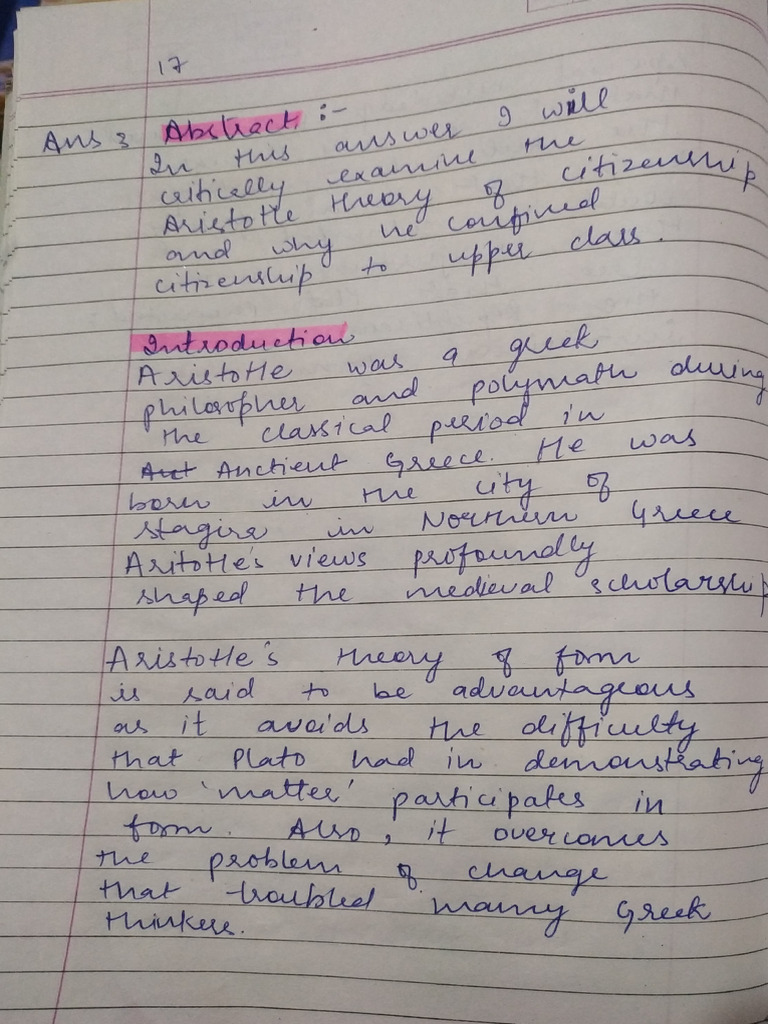 17
Ans 3 Abstract :-
In this answer I will
critically examine the
Aristotle theory of citizenship
and why he confined
citizenship to upper class.
Introduction
Aristotle was a greek
philosopher and polymath during
the classical period in
Anctient Greece. He was
born in the city of
stagira in Northern Greece
Aritotle's views profoundly
shaped the medieval scholarship
Aristotle's theory of form
is said to be advantageous
as it avoids the difficulty
that Plato had in demonstrating
how 'matter' participates in
form. Also, it overcomes
the problem of change
that troubled many Greek
thinkers.